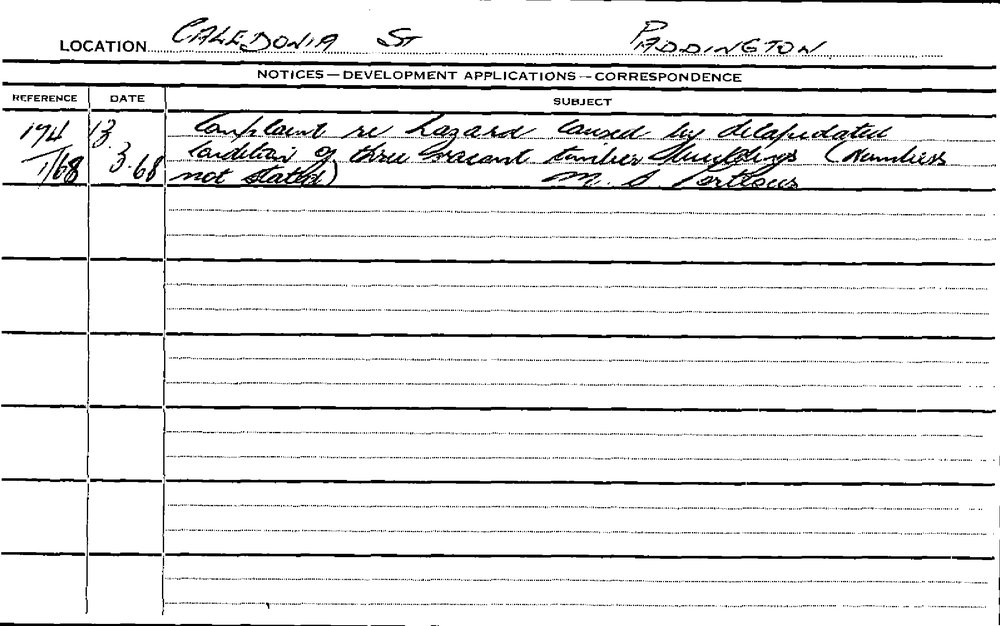 LOCATION CALEDONIA ST PADDINGTON
NOTICES—DEVELOPMENT APPLICATIONS—CORRESPONDENCE
REFERENCE DATE SUBJECT
194 13 Complaint re hazard caused by delapidated
1/68 3.68 Condition of three vacant timber buildings (Numbers
not stated) M. S.